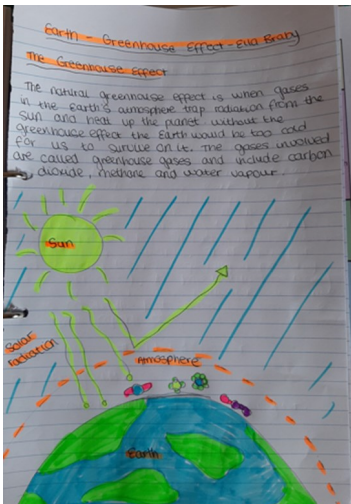 Earth - Greenhouse Effect - Ella Braby
The Greenhouse Effect
The natural greenhouse effect is when gases
in the Earth's atmosphere trap radiation from the
sun and heat up the planet. Without the
greenhouse effect the Earth would be too cold
for us to survive on it. The gases involved
are called greenhouse gases and include carbon
dioxide, methane and water vapour.
Sun
Solar
radiation
Atmosphere
Earth